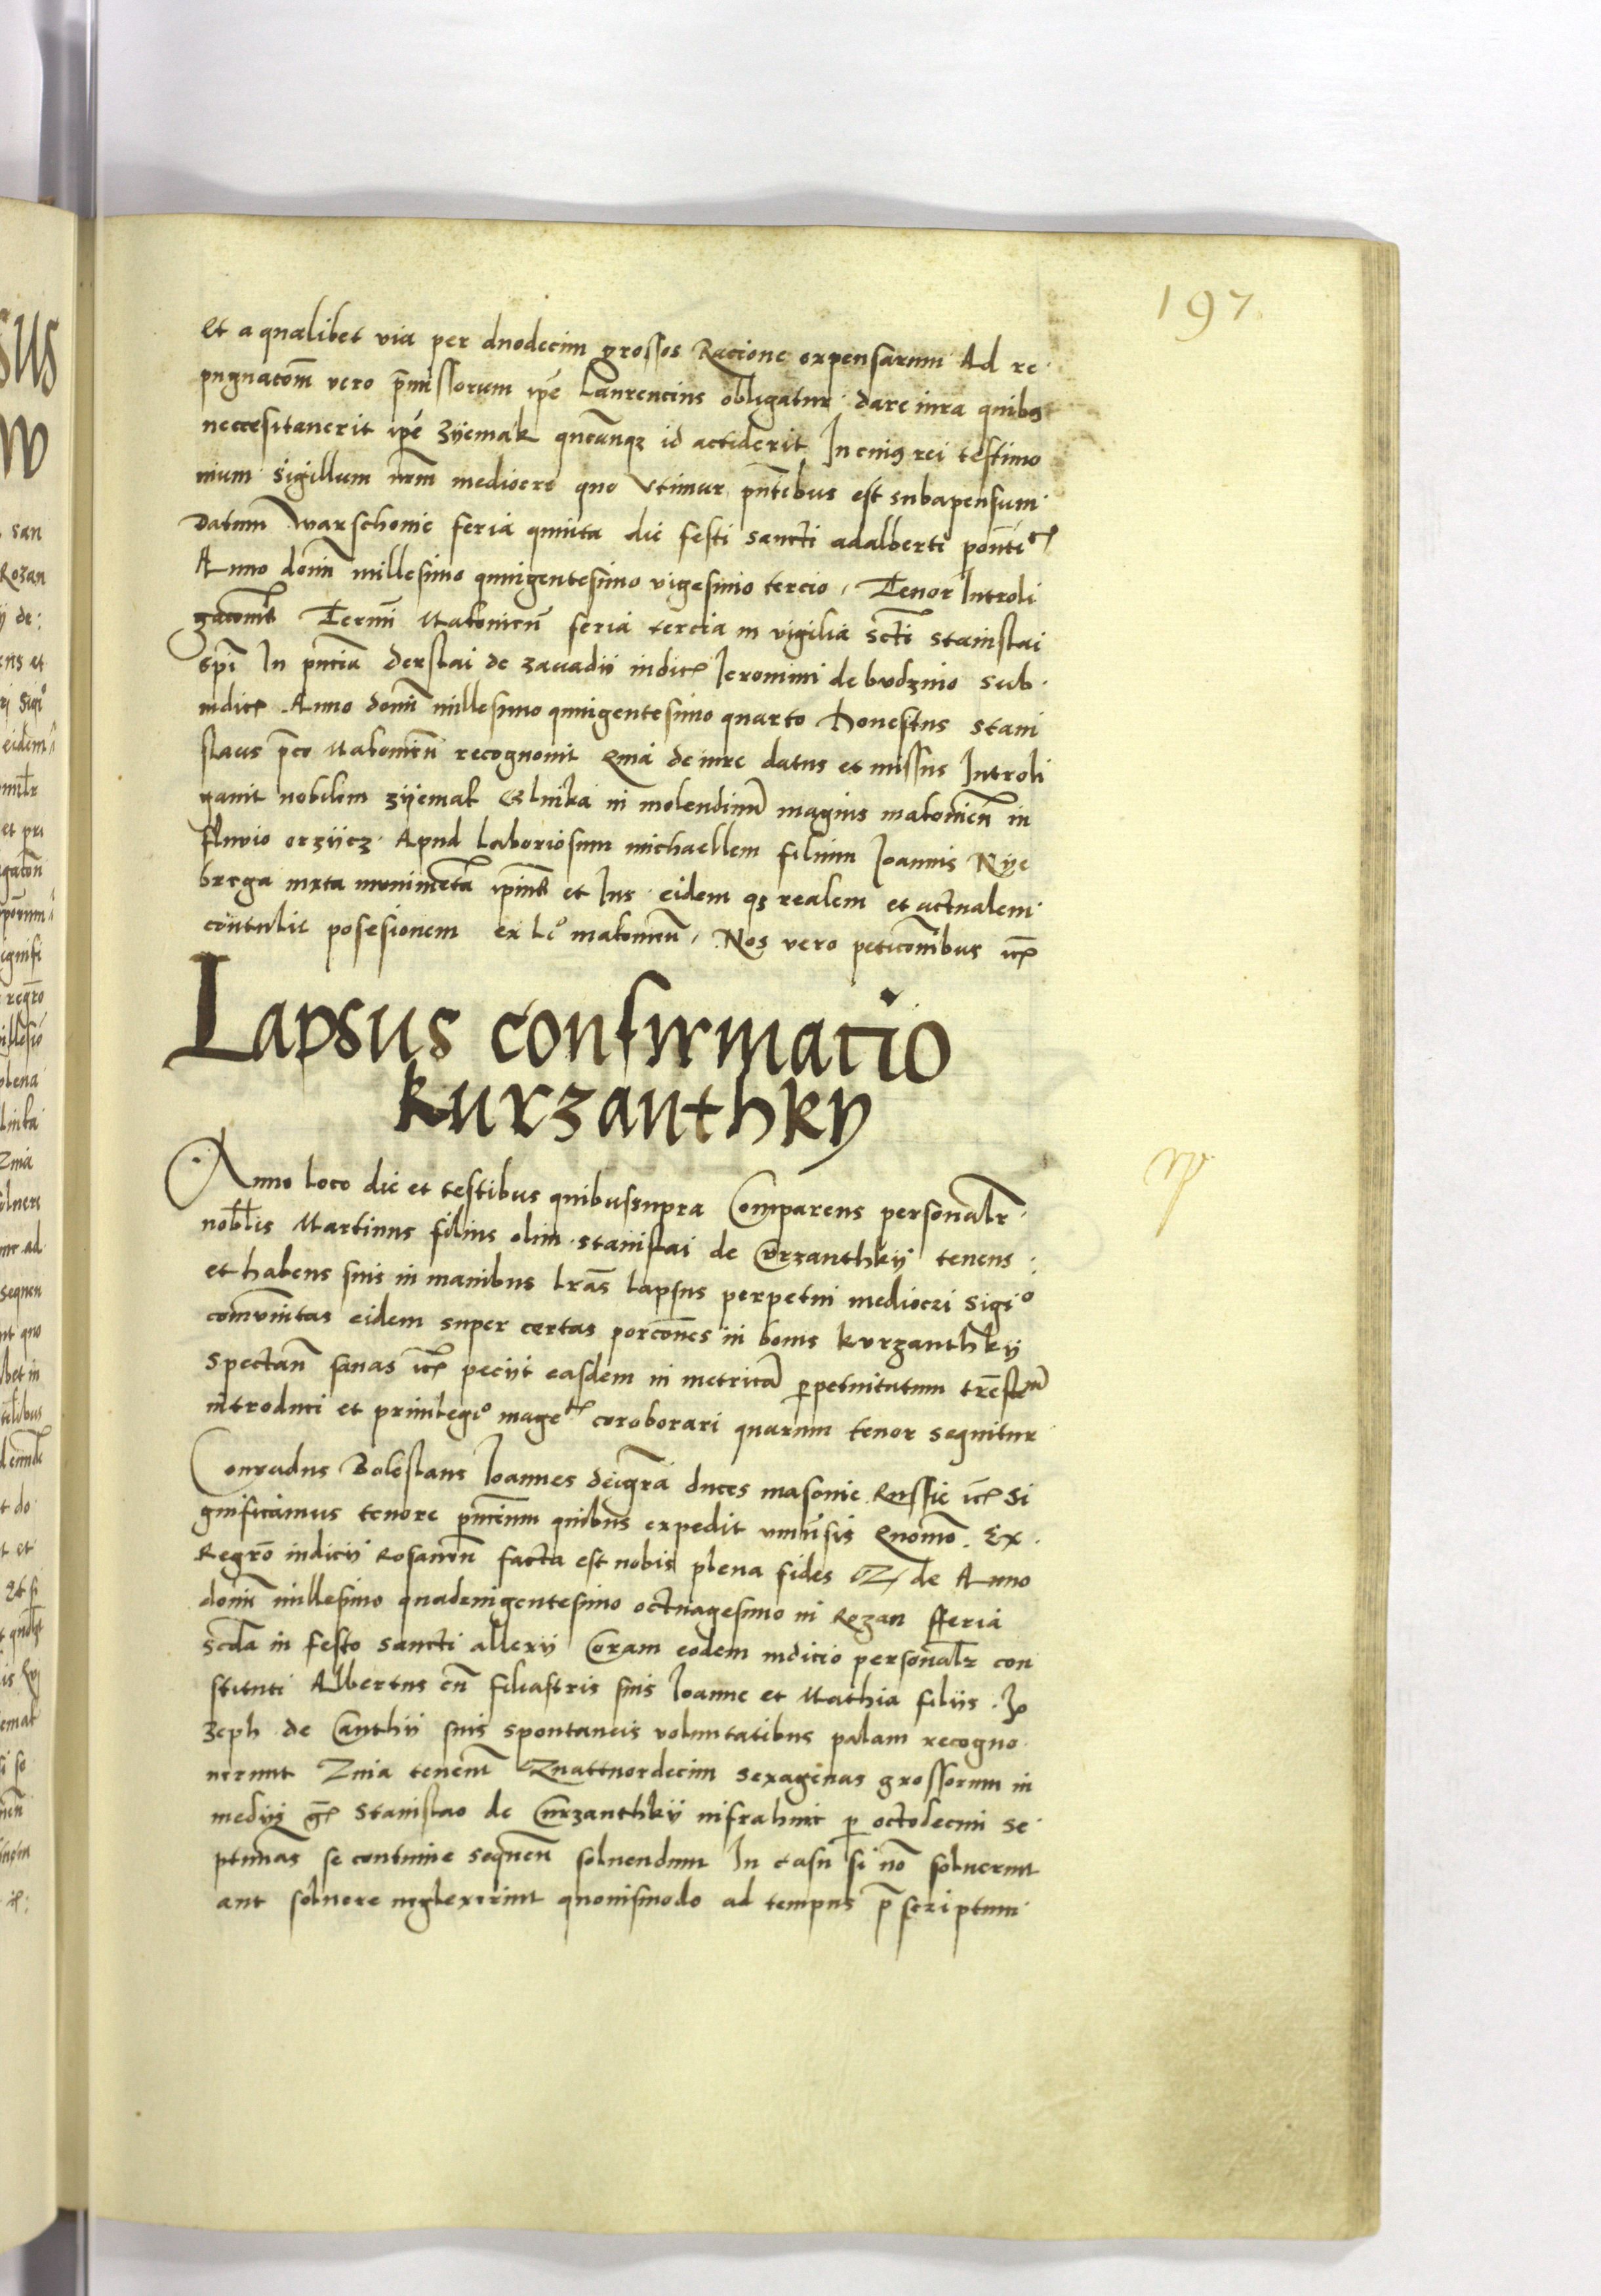 197
Et a qualibet via per duodecim grossos Racione expensarum Ad re
pugnacom̄ vero p̄missorum ip̄e Laurencius obligatur dare iura quibus
neccesitauerit ip̄e Zyemak qn̄cunqz id acciderit In cuius rei testimo
nium Sigillum nr̄m mediocre quo Vtimur pn̄tibus est subapensum
Datum Warschouie feria quinta die festi sancti adalberti ponti
Anno domī millesimo quingentesimo vigesimo tercio, Tenor Introli
gacoīs Termī Makouień feria tercia in vigilia scti stanislai
epī In pn̄cia derslai de zauadii iudić Ieronimi de budzino sub
iudić Anno domī millesimo quingentesimo quarto honestus stani
slaus p̄co Makouień recognouit Quia de iure datus et missus Introli
gauit nobilem zyemak Glinka in molendinū magnis makouień in
fluuio orzijcz Apud Laboriosum michaellem filium Ioannis Nye
brzega iuxta munimēta ip̄ius et Ius eidem qz realem et actualem
contulit posesionem ex lio makouień, Nos vero peticonibus ic̄
Lapsus confirmacio
kurzanthky
Anno loco die et testibus quibussupra Comparens personalr̄
nobilis Martinus filius olim stanislai de Curzanthky tenens
et habens suis in manibus lrās lapsus perpetui mediocri Sigio
comunitas eidem super certas porcones in bonis kurzanthky
spectań sanas ic̄ peciit easdem in metricā p̄petuitatum
introduci et priuilegio mage coroborari quarum tenor sequitur
Conradus Bolestaus Ioannes dei grā duces masouie Russie ic̄ Si
gnificamus tenore pn̄cium quibus expedit vniūsis Quomō Ex
Regrō iudicij Rosanień facta est nobis plena fides Qz de Anno
domī millesimo quadringentesimo octuagesimo in Rozan fferia
scda in festo sancti allexy Coram eodem iudicio personalr̄ con
stituti Albertus cū filiastris suis Ioanne et Mathia filiis Io
zeph de Canthij suis spontaneis voluntatibus palam recogno
uerunt Quia tenent Quattuordecim sexagenas grossorum in
medijs gr̄ Stanislao de Curzanthky infrahinc p octodecim se
ptimanas se continue sequeń soluendum In casu si nō soluerint
aut soluere neglexerint quouismodo ad tempus p̄scriptum